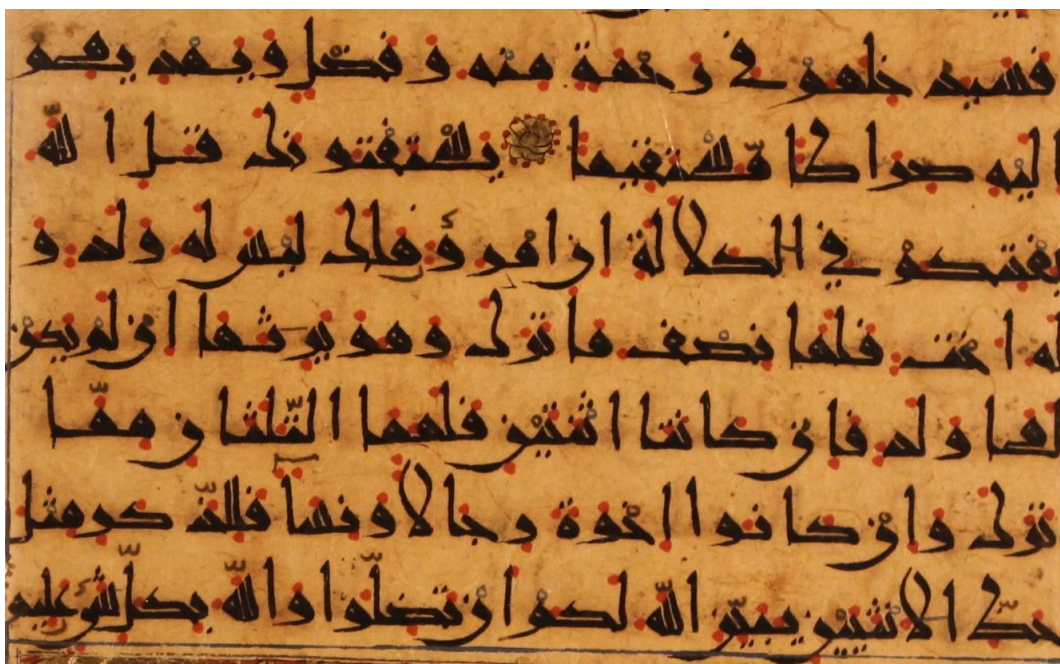 فسيدخلهم في رحمة منه وفضل ويهديهم
اليه صراطا مستقيما يستفتونك قل الله
يفتيكم في الكلالة ان امرؤ هلك ليس له ولد و
له اخت فلها نصف ما ترك وهو يرثها ان لم يكن
لها ولد فان كانتا اثنتين فلهما الثلثان مما
ترك وان كانوا اخوة رجالا ونسا فللذكر مثل
حظ الانثيين يبين الله لكم ان تضلوا والله بكل شئ عليم